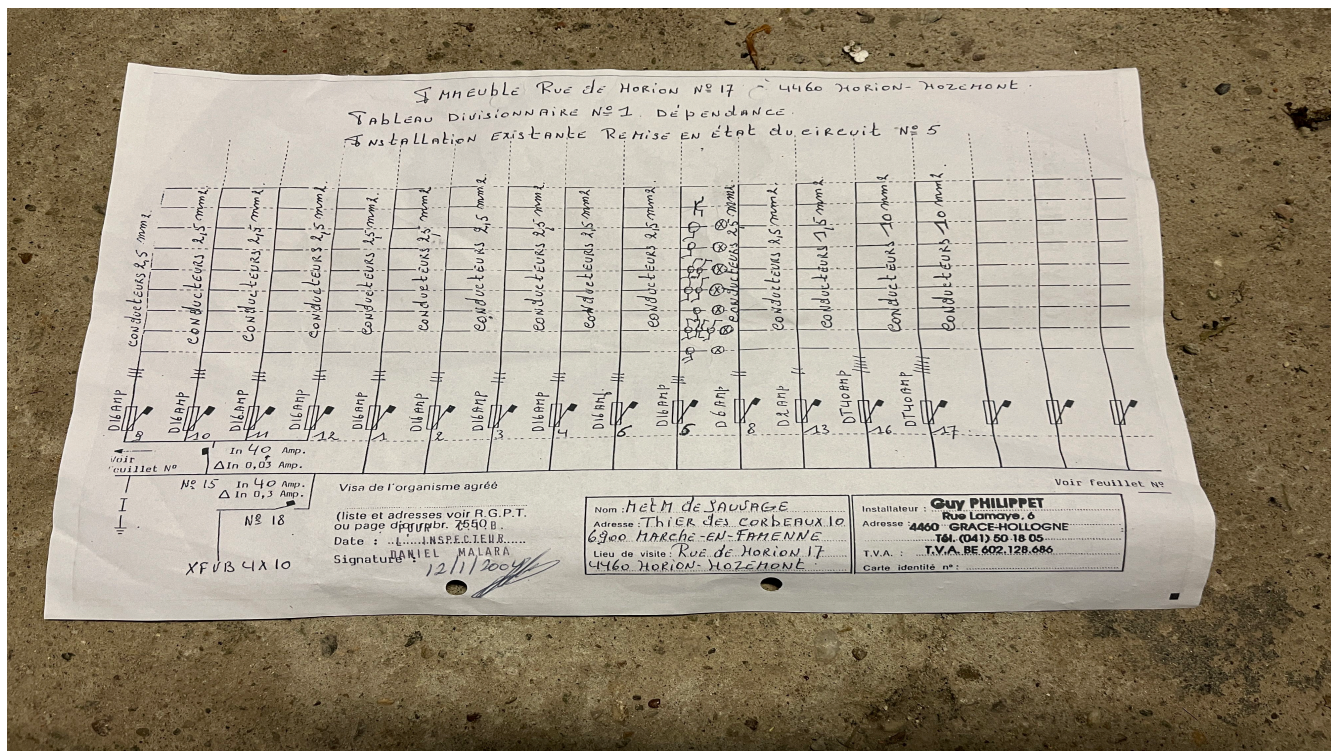 IMMEUBLE RUE de HORION Nº 17 à 4460 HORION-HOZEMONT.
TABLEAU DIVISIONNAIRE Nº 1. DÉPENDANCE.
INSTALLATION EXISTANTE REMISE EN ÉTAT du circuit Nº 5
CONDUCTEURS 2,5 mm2.
CONDUCTEURS 2,5 mm2.
CONDUCTEURS 2,5 mm2.
CONDUCTEURS 2,5 mm2.
CONDUCTEURS 2,5 mm2.
CONDUCTEURS 2,5 mm2
CONDUCTEURS 2,5 mm2
CONDUCTEURS 2,5 mm2
CONDUCTEURS 2,5 mm2
CONDUCTEURS 2,5 mm2.
CONDUCTEURS 2,5 mm2
CONDUCTEURS 2,5 mm2
CONDUCTEURS 1,5 mm2
CONDUCTEURS 10 mm2
CONDUCTEURS 10 mm2
D16AMP D16AMP D16AMP D16AMP D16AMP D16AMP D16AMP D16AMP D16AMP D16AMP D6AMP D2AMP DT40AMP DT40AMP
9 10 11 12 1 2 3 4 5 6 8 13 16 17
Voir
feuillet Nº
In 40 Amp.
Δ In 0,03 Amp.
Nº 15 In 40 Amp.
Δ In 0,3 Amp.
Nº 18
XFVB 4X10
Voir feuillet Nº
Visa de l'organisme agréé
(liste et adresses voir R.G.P.T.
Date :
L'INSPECTEUR
DANIEL MALARA
Signature :
12/1/2004
Nom : M et M de SAUVAGE
Adresse : THIER des CORBEAUX 10
6900 MARCHE-EN-FAMENNE
Lieu de visite : RUE de HORION 17
4460 HORION-HOZEMONT.
Installateur : Guy PHILIPPET
Adresse : Rue Lamaye, 6
4460 GRACE-HOLLOGNE
Tél. (041) 50 18 05
T.V.A. : T.V.A. BE 602.128.686
Carte identité nº :